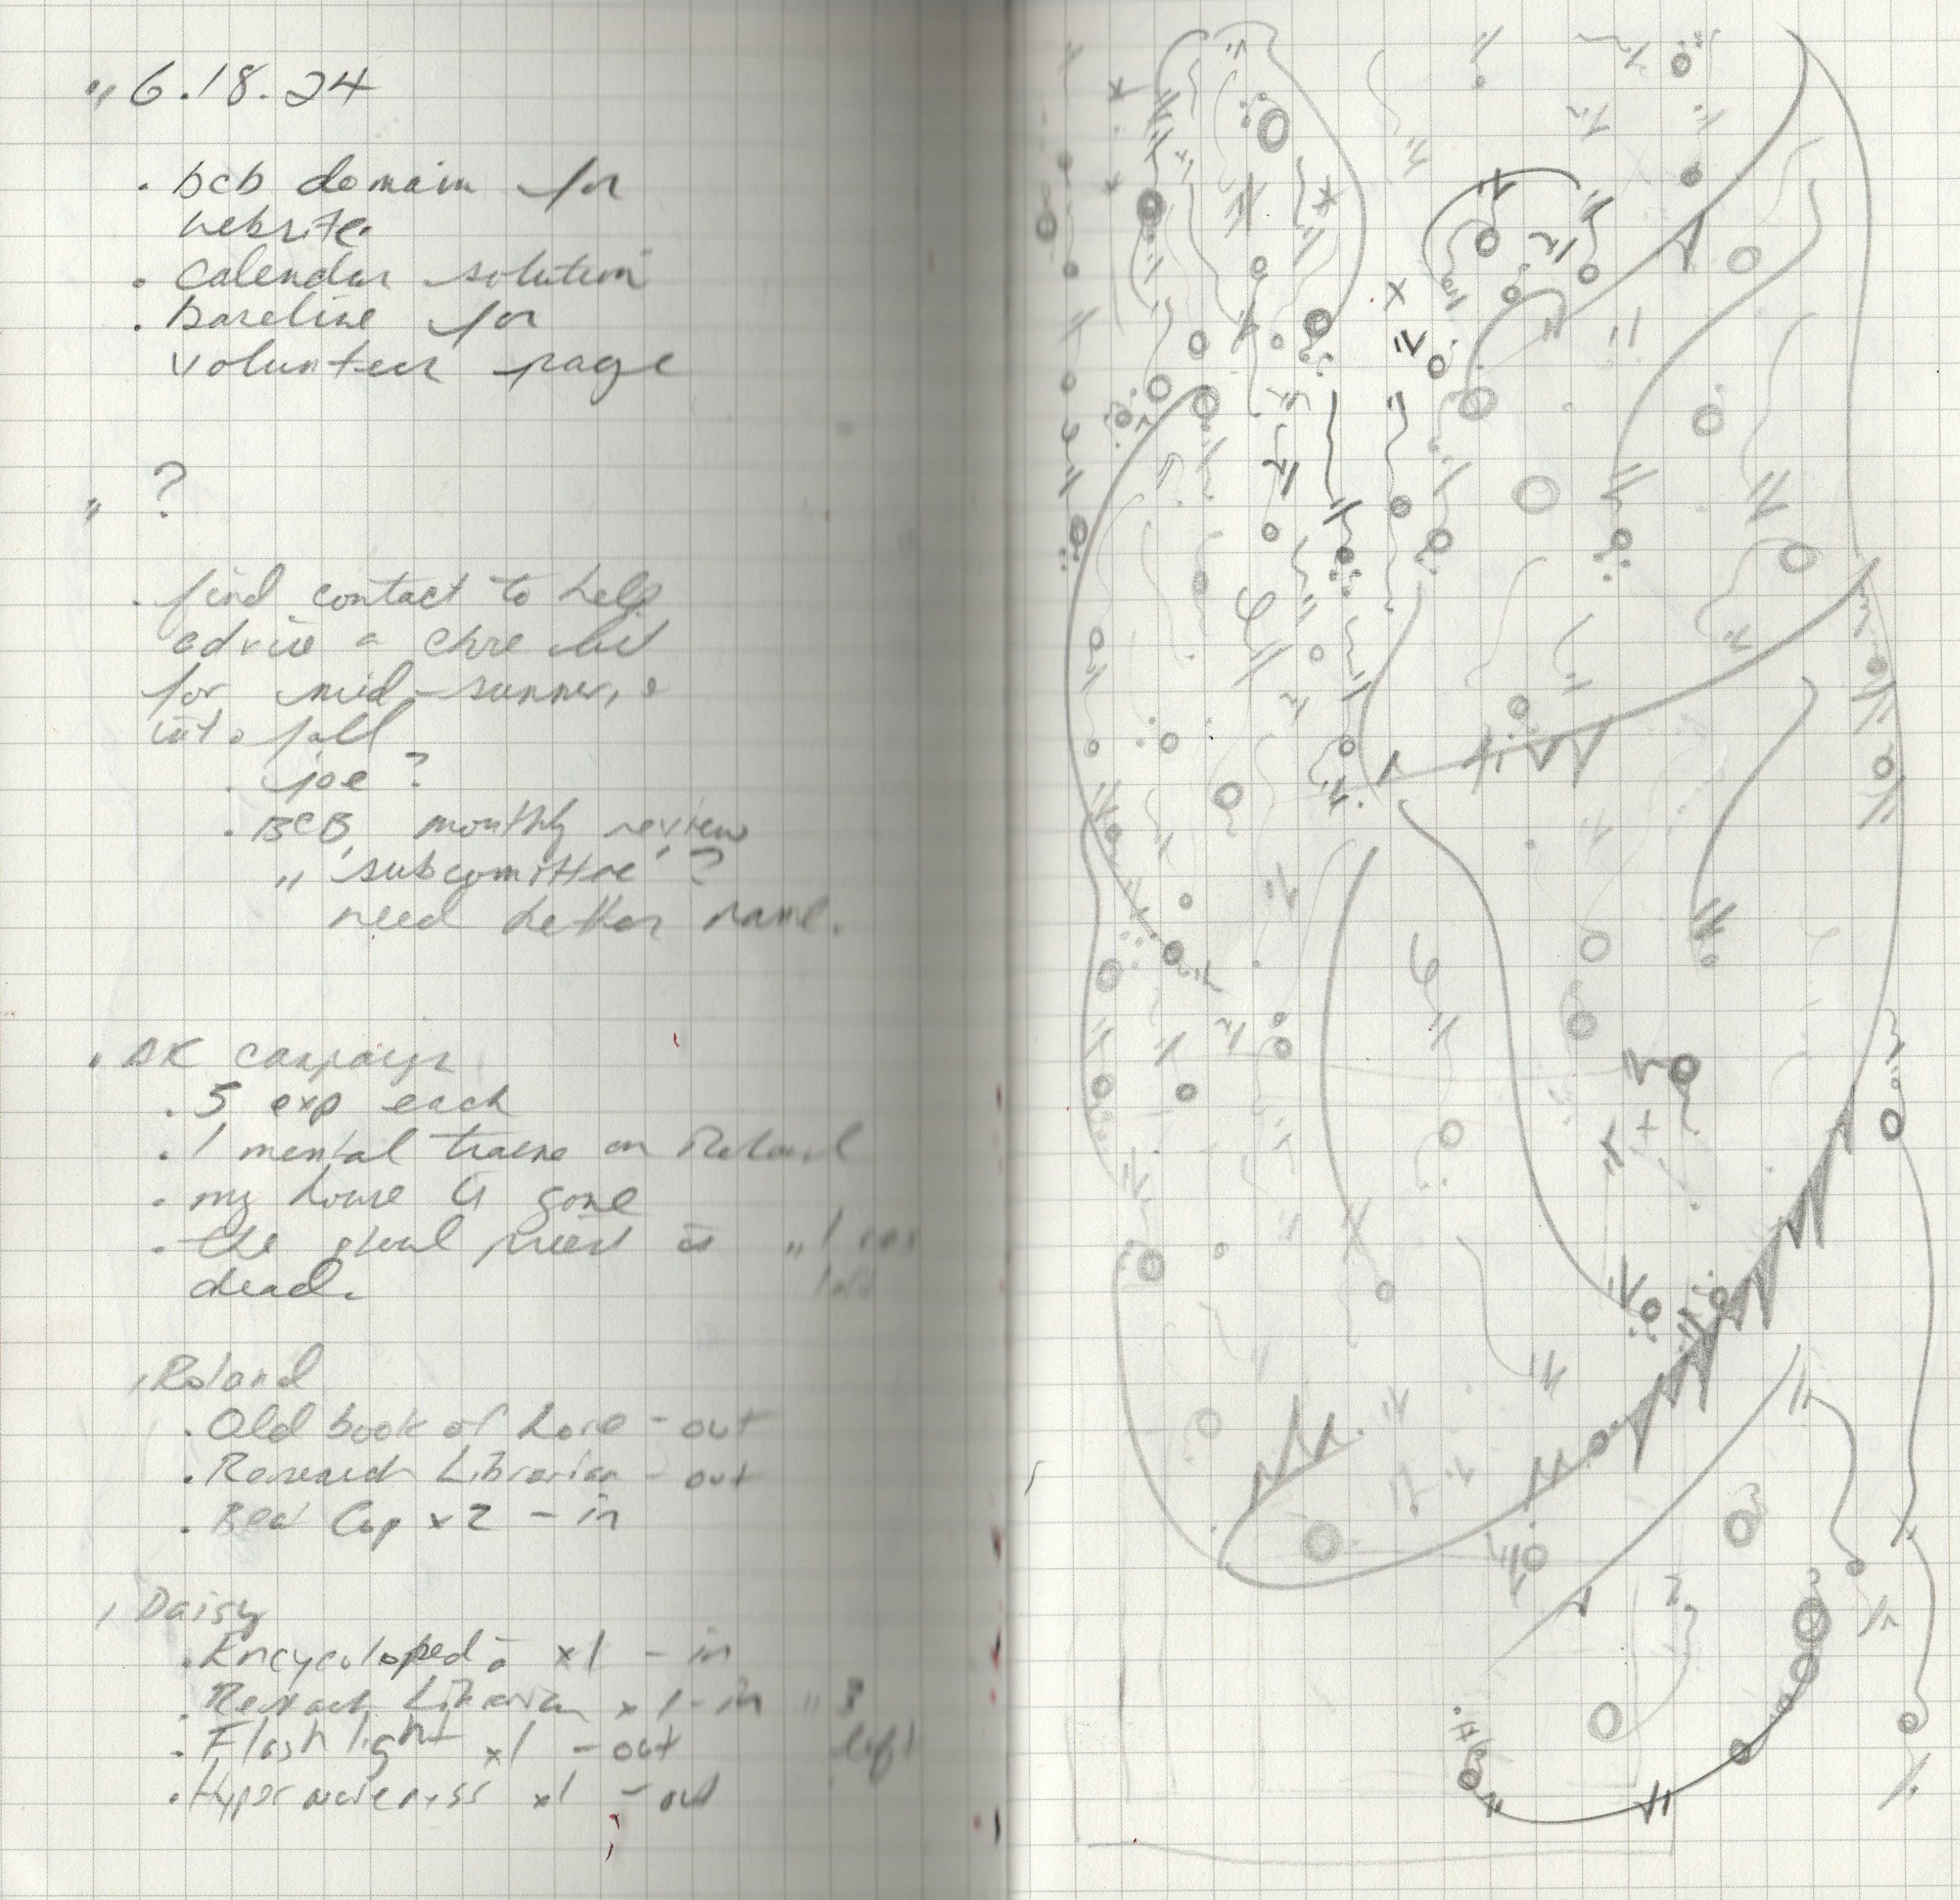 〃 6.18.24
. bcb domain for
website
. calendar solution
. baseline for
volunteer page
〃 ?
. find contact to help
advise a chore list
for mid-summer,
into fall
. joe?
. BCB, monthly review
〃 'subcomittee'?
need better name.
. AK campaign
. 5 exp each
. 1 mental trauma on Roland
. my house is gone
. the ghoul priest is 〃 1
dead. left
, Roland
. Old book of Lore - out
. Research Librarian - out
. Beat Cop x2 - in
, Daisy
. Encycolopedia x1 - in
. Research Librarian x1 - in 〃 3
. Flashlight x1 - out left
. Hyperawareness x1 - out